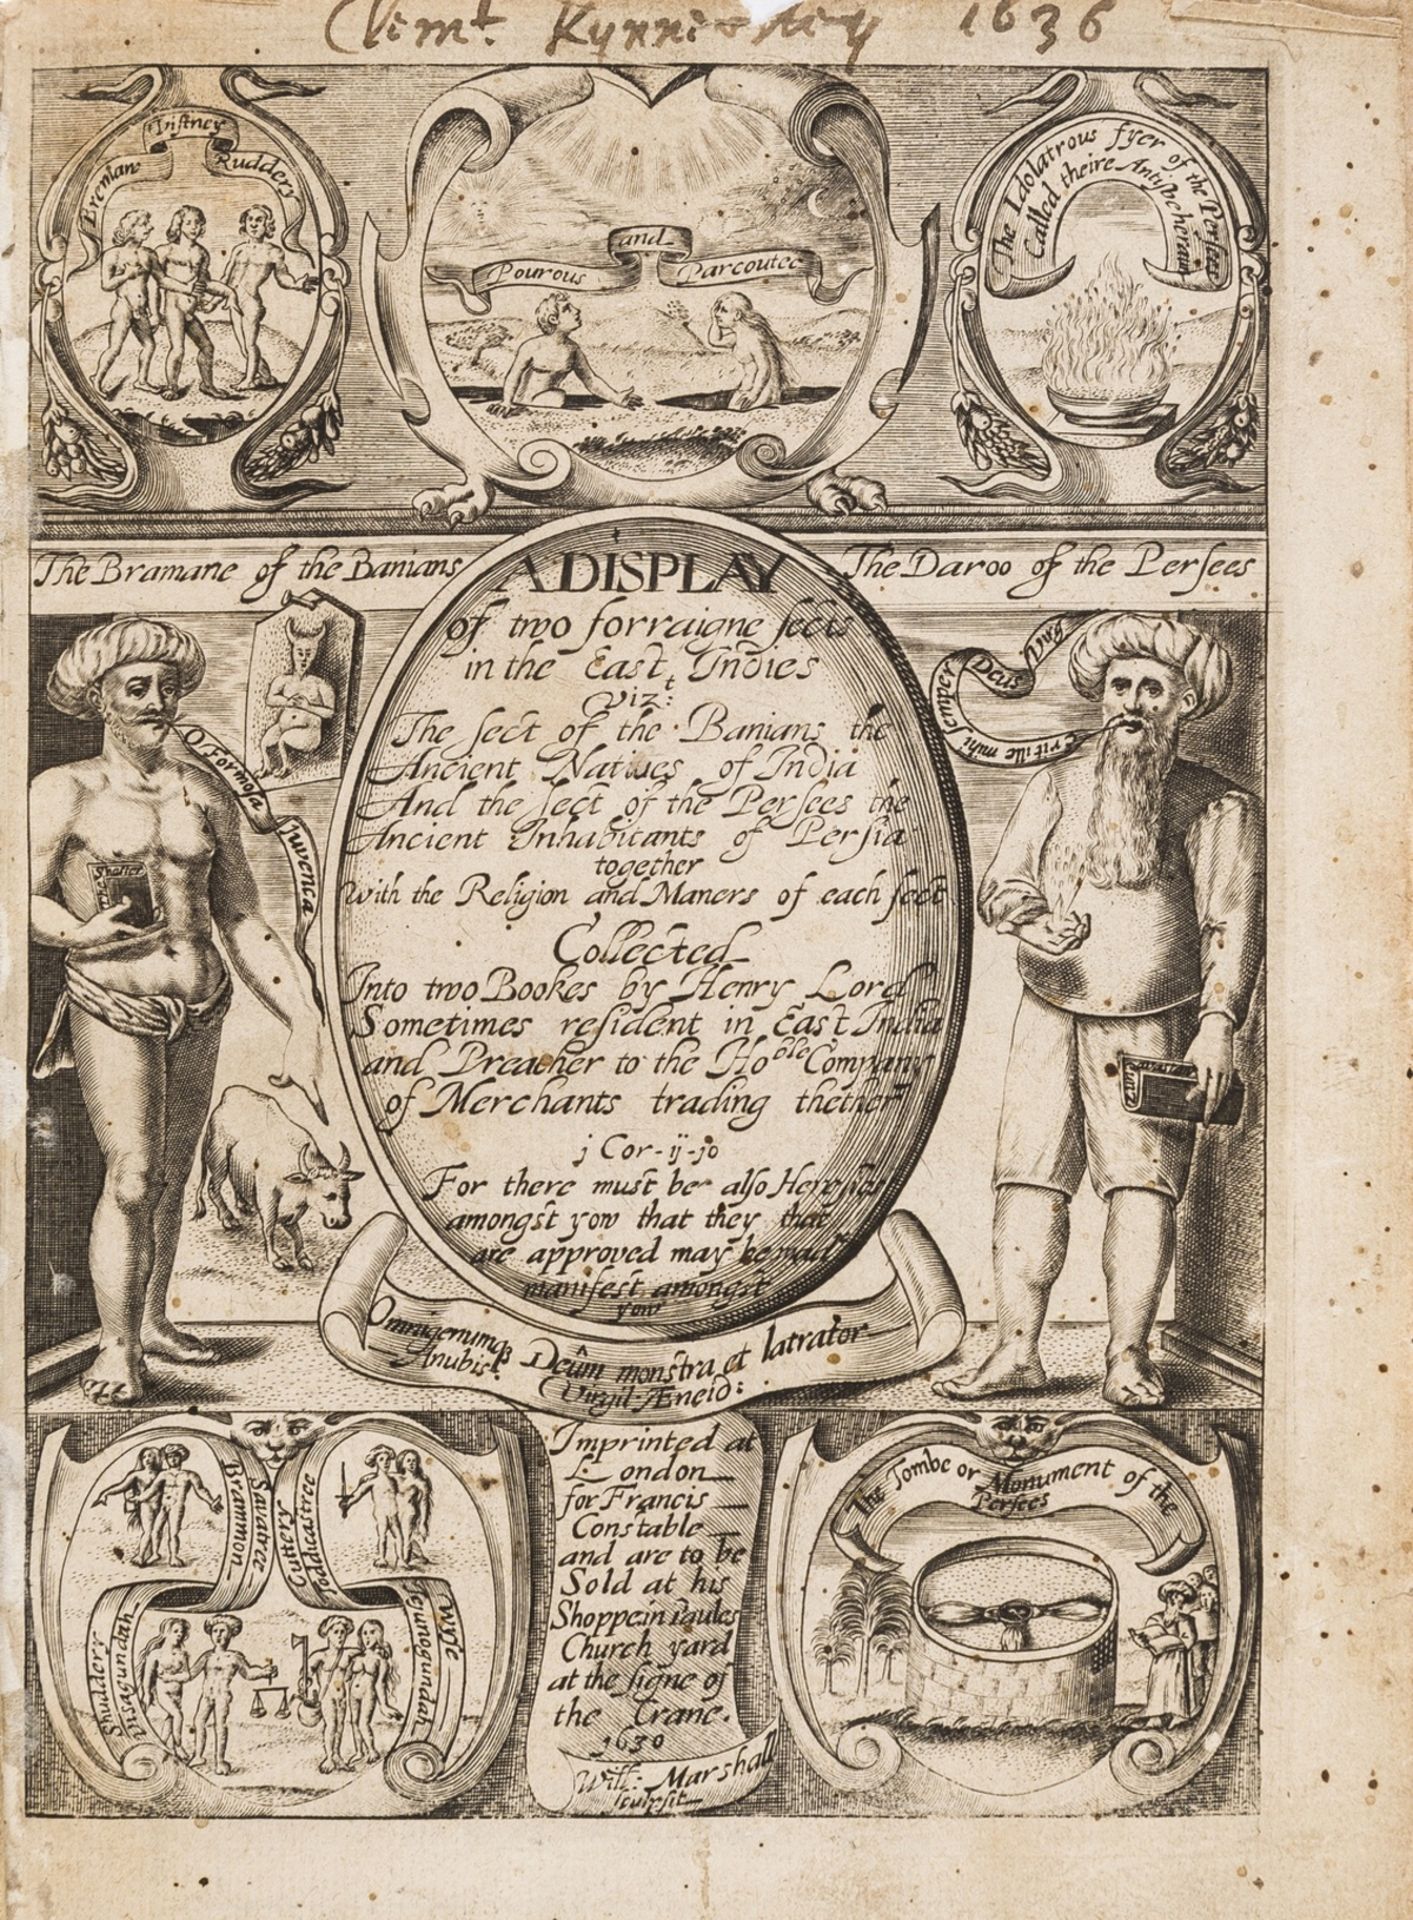 Clemt. Kynnersley 1636
Bremaw
Vistney
Ruddery
Pourous and Parcoutee
The Idolatrous fyer of the Persees
Called theire Antisbeheraun
The Bramane of the Banians
The Daroo of the Persees
O Formosa Juvenca
The Shaster
Erit ille mihi semper Deus
A DISPLAY
of two forraigne sects
in the East Indies
Vizt:
The sect of the Banians the
Ancient Natives of India
And the sect of the Persees the
Ancient Inhabitants of Persia
together
with the Religion and Maners of each sect
Collected
Into two Bookes by Henry Lord
Sometimes resident in East India
and Preacher to the Hoble Company
of Merchants trading thether
j Cor-ij-jo
For there must be also Heresies
amongst yow that they that
are approved may be mad
manifest amongst
yow
Omnigenumq3 Deûm monstra et latrator
Anubis.
Virgil. Æneid:
Brammon Savatree
Cuttery Toddicastree
Shudderi Visagundah
Wyse Jejunogundah
Imprinted at
London
for Francis
Constable
and are to be
Sold at his
Shoppe in Paules
Church yard
at the signe of
the Crane.
1630
Will: Marshall
sculpsit
The Tombe or Monument of the
Persees